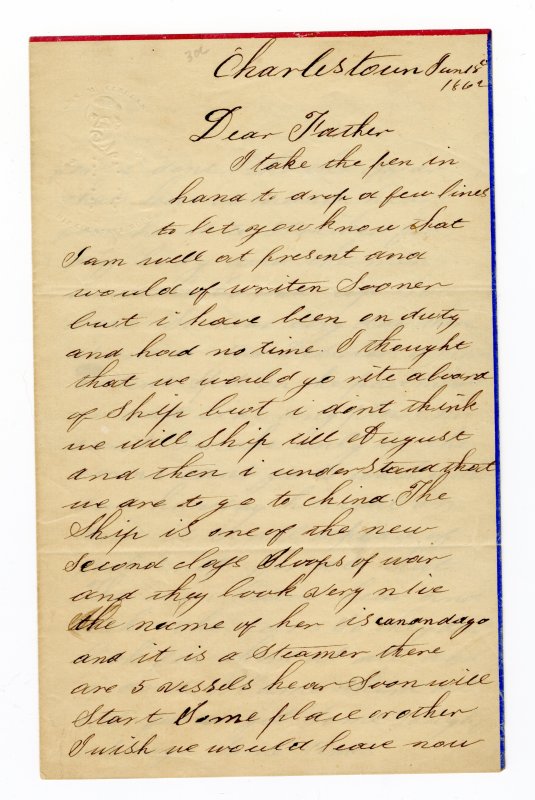 Charlestown Jun 18
1862
Dear Father
I take the pen in
hand to drop a few lines
to let yow know that
I am well at present and
would of writen Sooner
but i have been on duty
and had no time. I thought
that we would go rite aboard
of Ship but i dont think
we will Ship till August
and then i understand that
we are to go to china The
Ship is one of the new
Second class Sloops of war
and they look very nice
the name of her is canandago
and it is a Steamer there
are 5 vessels hear Soon will
Start Some place or other
I wish we would leave now